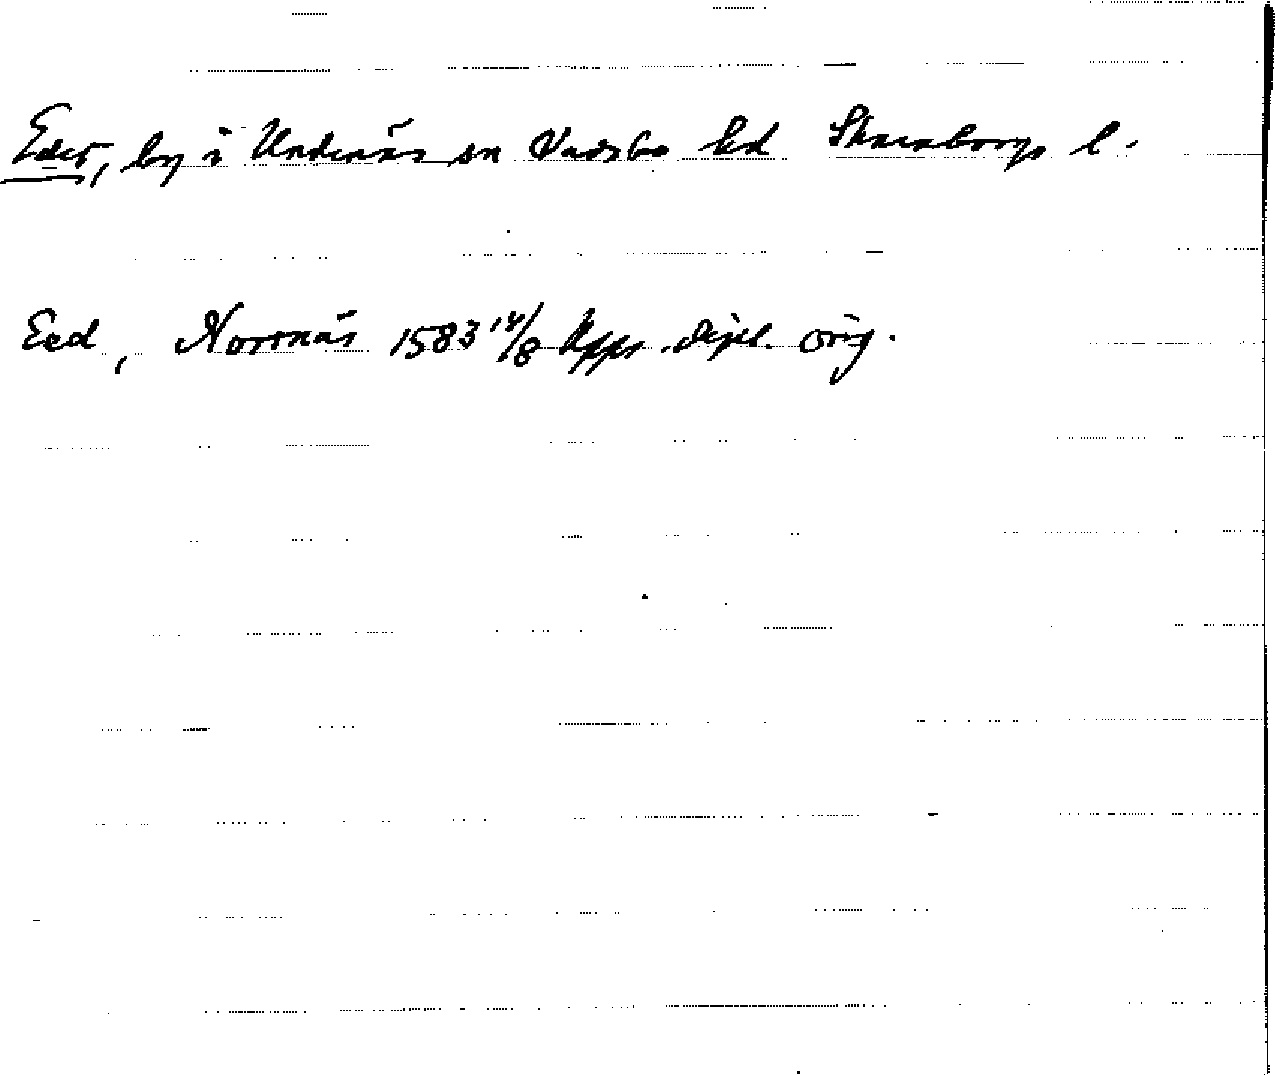 Edet, by i Undenäs sn Vadsbo hd Skaraborgs l.
Eed, Norrnäs 1583 14/8 Upps. dipl. orig.